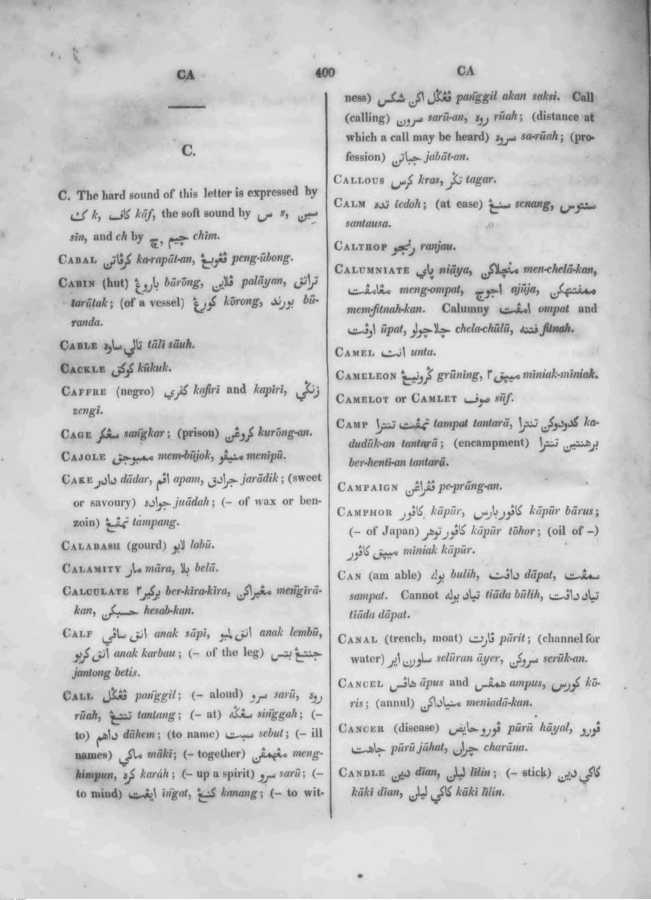 CA
400
CA
C.
C. The hard sound of this letter is expressed by
ک k, کاف kāf, the soft sound by س s, سين
sīn, and ch by چ, چيم chīm.
CABAL کرڤاتن ka-rapāt-an, ڤڠوبڠ peng-ūbong.
CABIN (hut) باروڠ bārōng, ڤلاين palāyan, تراتق
tarūtak; (of a vessel) کورڠ kōrong, بورند bū-
randa.
CABLE تالي ساوه tāli sāuh.
CACKLE کوکق kūkuk.
CAFFRE (negro) کفري kafiri and kapīri, زنگي
zengi.
CAGE سڠکر sangkar; (prison) کوروڠن kurōng-an.
CAJOLE ممبوجق mem-būjok, منيڤو menīpū.
CAKE دادر dādar, اڤم apam, جرادق jarādik; (sweet
or savoury) جواده juādah; (– of wax or ben-
zoin) تمڤڠ tampang.
CALABASH (gourd) لابو labū.
CALAMITY مار māra, بلا belā.
CALCULATE برکير٢ ber-kīra-kīra, مڠيراکن mengīrā-
kan, حسبکن hesab-kan.
CALF انق ساڤي anak sāpi, انق لمبو anak lembū,
انق کربو anak karbau; (– of the leg) جنتڠ بتس
jantong betis.
CALL ڤڠگل panggil; (– aloud) سرو sarū, روه
rūah, تنتڠ tantang; (– at) سڠگه singgah; (–
to) داهم dāhem; (to name) سبت sebut; (– ill
names) ماکي mākī; (– together) مڠهمڤن meng-
himpun, کره karáh; (– up a spirit) سرو sarū; (–
to mind) ايڠت ingat, کنڠ kanang; (– to wit-
ness) ڤڠگل اکن شکس panggil akan saksi. Call
(calling) سرون sarū-an, روه rūah; (distance at
which a call may be heard) سروه sa-rūah; (pro-
fession) جباتن jabāt-an.
CALLOUS کرس kras, تگر tagar.
CALM تده tedoh; (at ease) سنڠ senang, سنتوس
santausa.
CALTHOP رنجو ranjau.
CALUMNIATE نياي niāya, منچلاکن men-chelā-kan,
مڠامڤت meng-ompat, اجوج ajūja, ممفتنهکن
mem-fitnah-kan. Calumny امڤت ompat and
اوڤت ūpat, چلاچولو chela-chūlū, فتنه fitnah.
CAMEL انت unta.
CAMELEON گرونيڠ grūning, مينيق٢ mīniak-mīniak.
CAMELOT or CAMLET صوف sūf.
CAMP تمڤت تنترا tampat tantarā, کدودوکن تنترا ka-
dudūk-an tantarā; (encampment) برهنتين تنترا
ber-henti-an tantarā.
CAMPAIGN ڤڤراڠن pe-prāng-an.
CAMPHOR کاڤور kāpūr, کاڤور بارس kāpūr bārus;
(– of Japan) کاڤور توهر kāpūr tōhor; (oil of –)
مينيق کاڤور miniak kāpūr.
CAN (am able) بوله bulih, داڤت dāpat, سمڤت
sampat. Cannot تياد بوله tiāda būlih, تياد داڤت
tiāda dāpat.
CANAL (trench, moat) ڤارت pārit; (channel for
water) سلورن اير selūran āyer, سروکن serūk-an.
CANCEL هاڤس āpus and همڤس ampus, کورس kō-
ris; (annul) منياداکن meniadā-kan.
CANCER (disease) ڤورو حايض pūrū hāyal, ڤورو
جاهت pūrū jāhat, چران charāna.
CANDLE دين dīan, ليلن līlin; (– stick) کاکي دين
kāki dīan, کاکي ليلن kāki līlin.